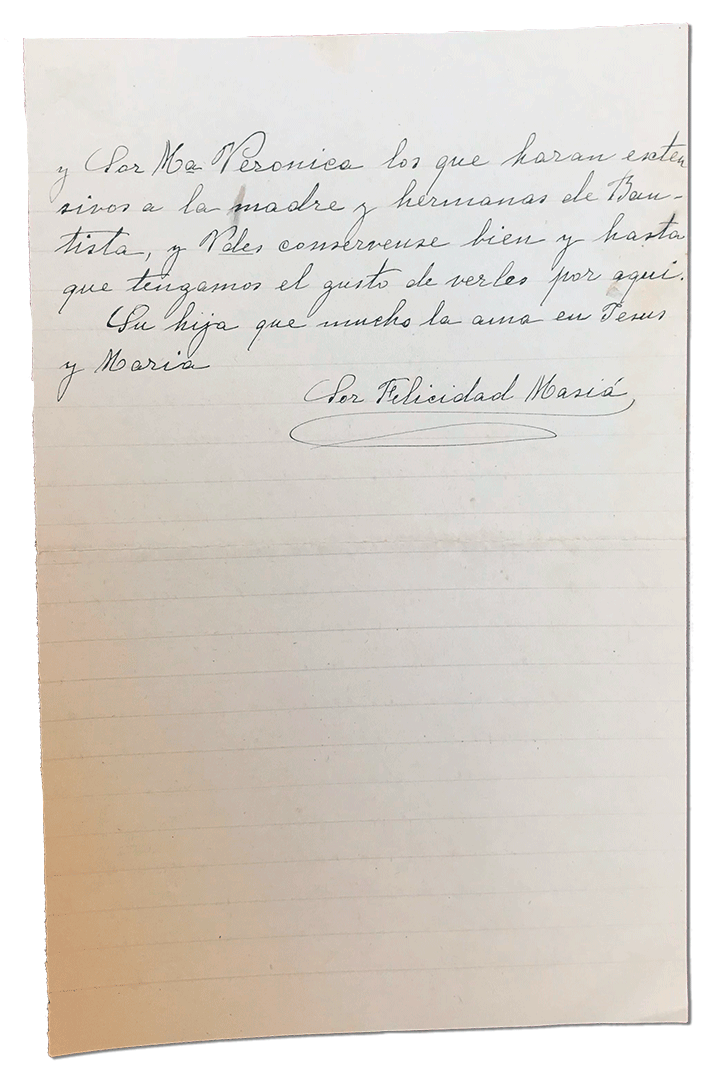 y Sor Ma Veronica los que haran exten
sivos a la madre y hermanas de Bau-
tista, y Vdes conservense bien y hasta
que tengamos el gusto de verles por aqui.
Su hija que mucho la ama en Jesus
y Maria
Sor Felicidad Masiá